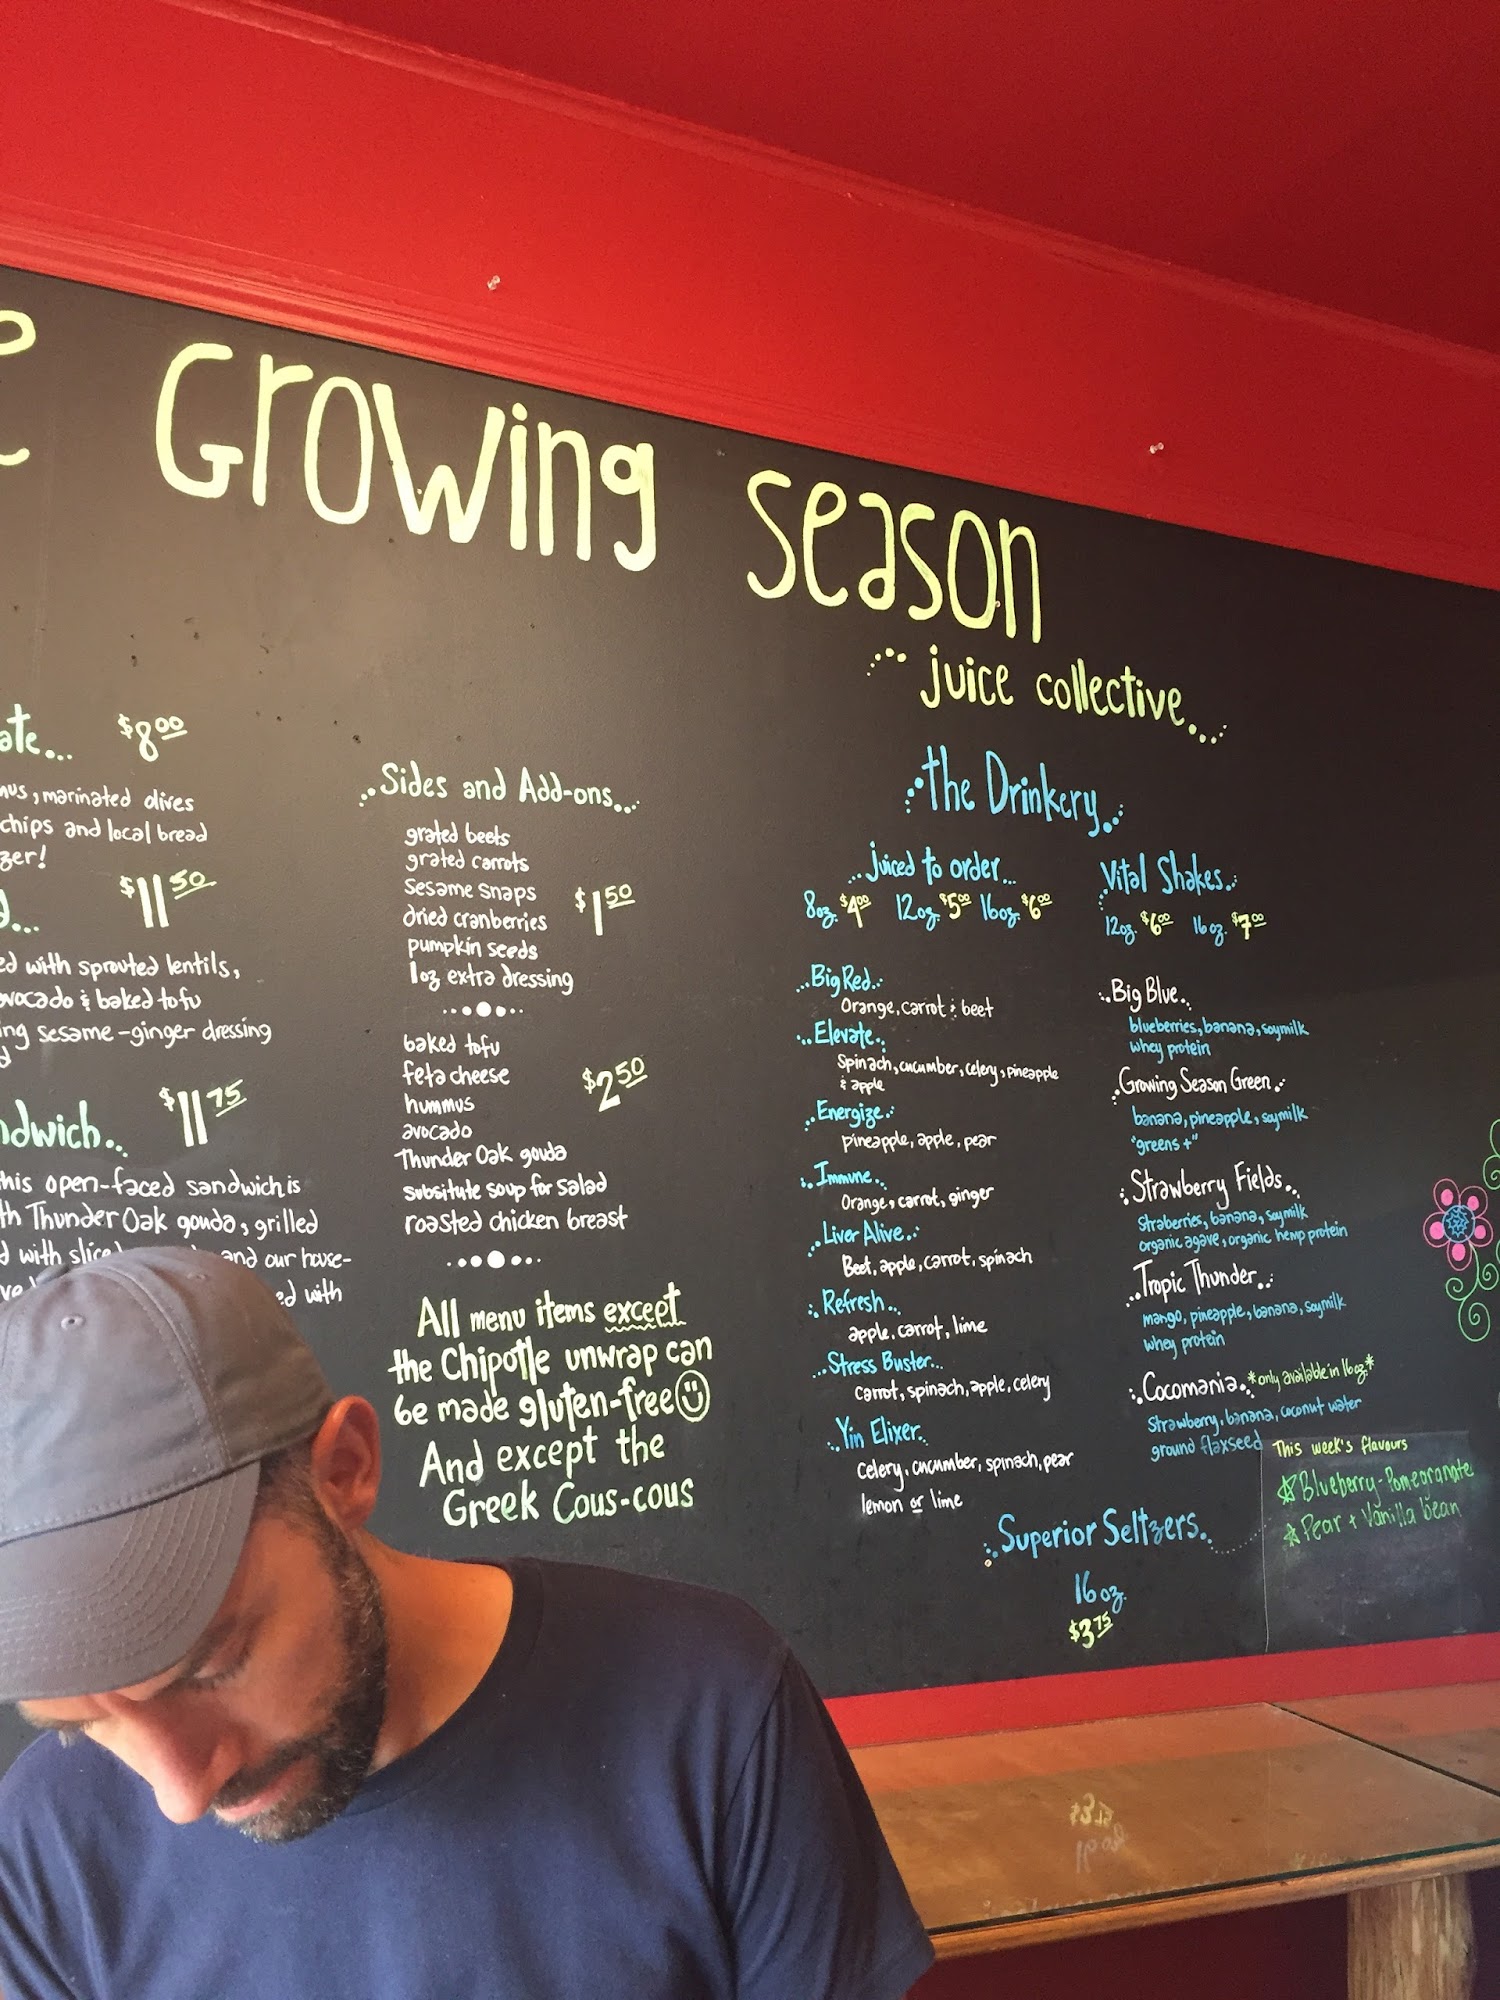 Growing season
juice collective
ate... $8.00
mus, marinated olives
chips and local bread
zer!
$11.50
ed with sprouted lentils,
avocado & baked tofu
ing sesame-ginger dressing
ndwich... $11.75
this open-faced sandwich is
th Thunder Oak gouda, grilled
d with
and our house-
ed with
Sides and Add-ons...
grated beets
grated carrots
sesame snaps $1.50
dried cranberries
pumpkin seeds
1oz extra dressing
baked tofu
feta cheese $2.50
hummus
avocado
Thunder Oak gouda
subsitute soup for salad
roasted chicken breast
All menu items except
the Chipotle unwrap can
be made gluten-free
And except the
Greek Cous-cous
the Drinkery
juiced to order...
8oz. $4.00 12oz. $5.00 16oz. $6.00
Big Red
Orange, carrot & beet
Elevate
Spinach, cucumber, celery, pineapple
& apple
Energize
pineapple, apple, pear
Immune
Orange, carrot, ginger
Liver Alive
Beet, apple, carrot, spinach
Refresh
apple, carrot, lime
Stress Buster...
carrot, spinach, apple, celery
Yin Elixer
celery, cucumber, spinach, pear
lemon or lime
Vital Shakes
12oz. $6.00 16oz. $7.00
Big Blue
blueberries, banana, soymilk
whey protein
Growing Season Green
banana, pineapple, soymilk
"greens +"
Strawberry Fields
straberries, banana, soymilk
organic agave, organic hemp protein
Tropic Thunder
mango, pineapple, banana, soymilk
whey protein
Cocomania *only available in 16oz.*
Strawberry, banana, coconut water
ground flaxseed
Superior Seltzers
16oz.
$3.75
This week's flavours
Blueberry-Pomegranate
Pear + Vanilla bean